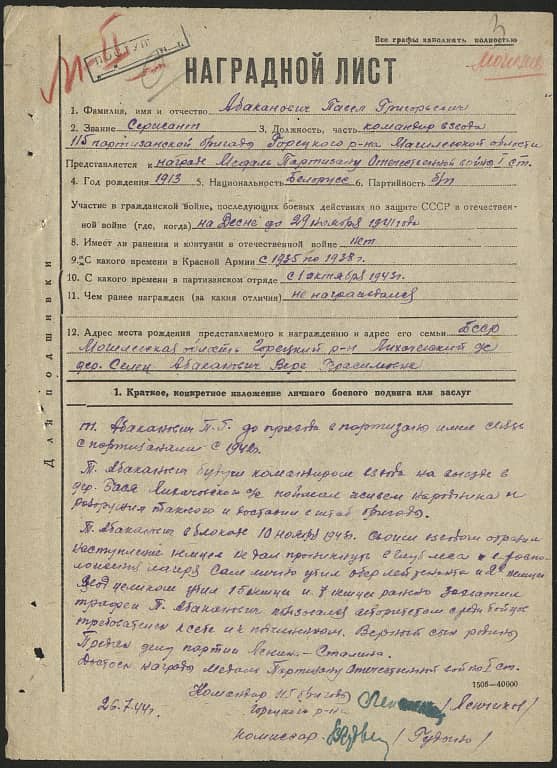 Все графы заполнять полностью
3
Могилев
ПОСТУП
НАГРАДНОЙ ЛИСТ
1. Фамилия, имя и отчество Абаканович Павел Григорьевич
2. Звание Сержант 3. Должность, часть командир взвода
115 партизанской бригады Горецкого р-на Могилевской области
Представляется к награде Медаль Партизану Отечественной войны I ст.
4. Год рождения 1913 5. Национальность Белорусс 6. Партийность б/п
Участие в гражданской войне, последующих боевых действиях по защите СССР и отечествен-
ной войне (где, когда) на Десне до 29 ноября 1941 года
8. Имеет ли ранения и контузии в отечественной войне нет
9. С какого времени в Красной Армии с 1935 по 1938 г.
10. С какого времени в партизанском отряде с 1 октября 1943 г.
11. Чем ранее награжден (за какия отличия) не награждался
12. Адрес места рождения представляемого к награждению и адрес его семьи БССР
Могилевская область Горецкий р-н с/с
дер. Абаканович Вера Герасимовна
Для подшивки
1. Краткое, конкретное изложение личного боевого подвига или заслуг
т. Абаканович П.Г. до прихода в партизаны имел связь
с партизанами с 1942г.
Т. Абаканович будучи командиром взвода на выезде в
дер. с/с поймали живьем и
такого и доставил в штаб бригады.
Т. Абаканович в блокаде 10 ноября 1943г. своим взводом отразил
наступление немцев не дал проникнуть в глубь леса к распо-
ложению лагеря Сам лично убил обер лейтенанта и 2х немцев
Взод целиком убил 15 немцев и 7 немцев ранено захватил
трофеи Т. Абаканович пользовался авторитетом среди бойцов
требователен к себе и к подчиненным. Верный сын родины
Предан делу партии Ленина-Сталина.
Достоен награды медаль Партизану Отечественной войны I ст.
1506-40000
Командир 115 бригады
Горецкого р-на
26.7.44г.
комиссар